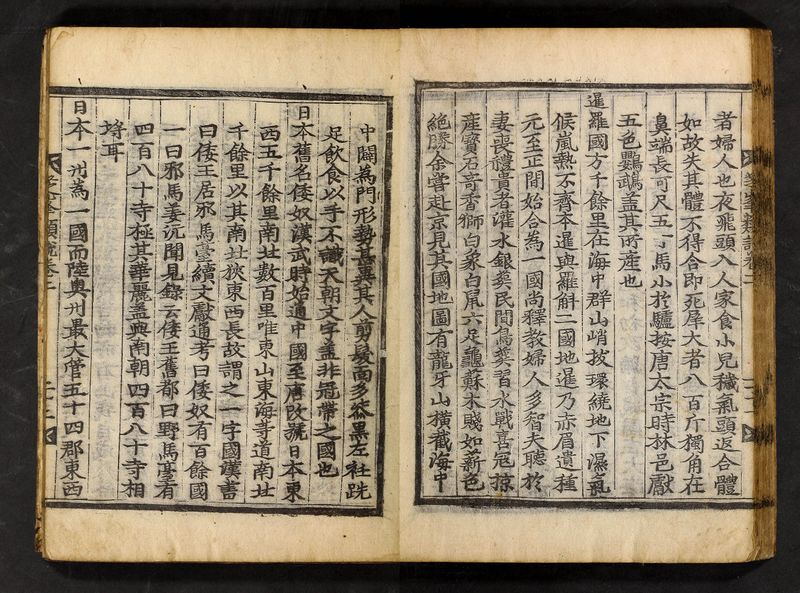 芝峯類說卷二
者婦人也夜飛頭入人家食小兒穢氣頭返合體
如故失其體不得合即死犀大者八百斤獨角在
鼻端長可尺五寸馬小於驢按唐太宗時林邑獻
五色鸚鵡盖其所産也
暹羅國方千餘里在海中群山峭拔環繞地下濕氣
候嵐熱不齊本暹與羅斛二國地暹乃赤眉遺種
元至正間始合為一國尚釋教婦人多智夫聽於
妻喪禮貴者灌水銀葬民間鳥葬習水戰喜冦掠
産寶石奇香獅白象白鼠六足龜蘇木賤如薪色
絶勝余嘗赴京見其國地圖有龍牙山橫截海中
中闢為門形勢甚異其人剪髮面多漆黒左袵跣
足飲食以手不識天朝文字盖非冠帶之國也
日本舊名倭奴漢武時始通中國至唐改號日本東
西五千餘里南北數百里唯東山東海等道南北
千餘里以其南北狹東西長故謂之一字國漢書
曰倭王居邪馬臺續文獻通考曰倭奴有百餘國
一曰邪馬臺沈聞見錄云倭王舊都曰野馬臺有
四百八十寺極其華麗盖與南朝四百八十寺相
埒耳
日本一州為一國而陸奥州最大管五十四郡東西
芝峯類說卷二